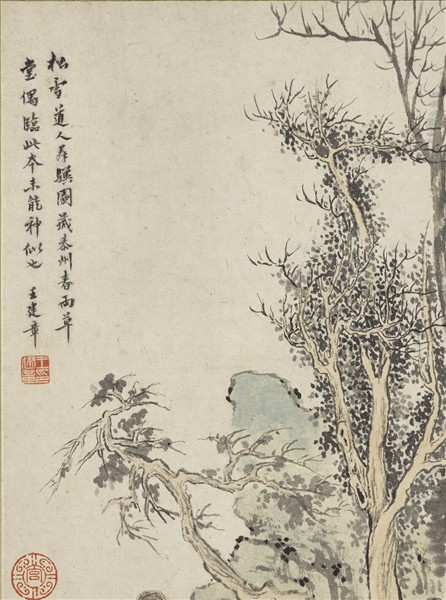 松雪道人羣騾圖藏泰州春雨草
堂偶臨此本未能神似也
王建章